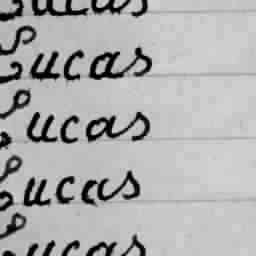 Lucas
Lucas
Lucas
Lucas
Lucas